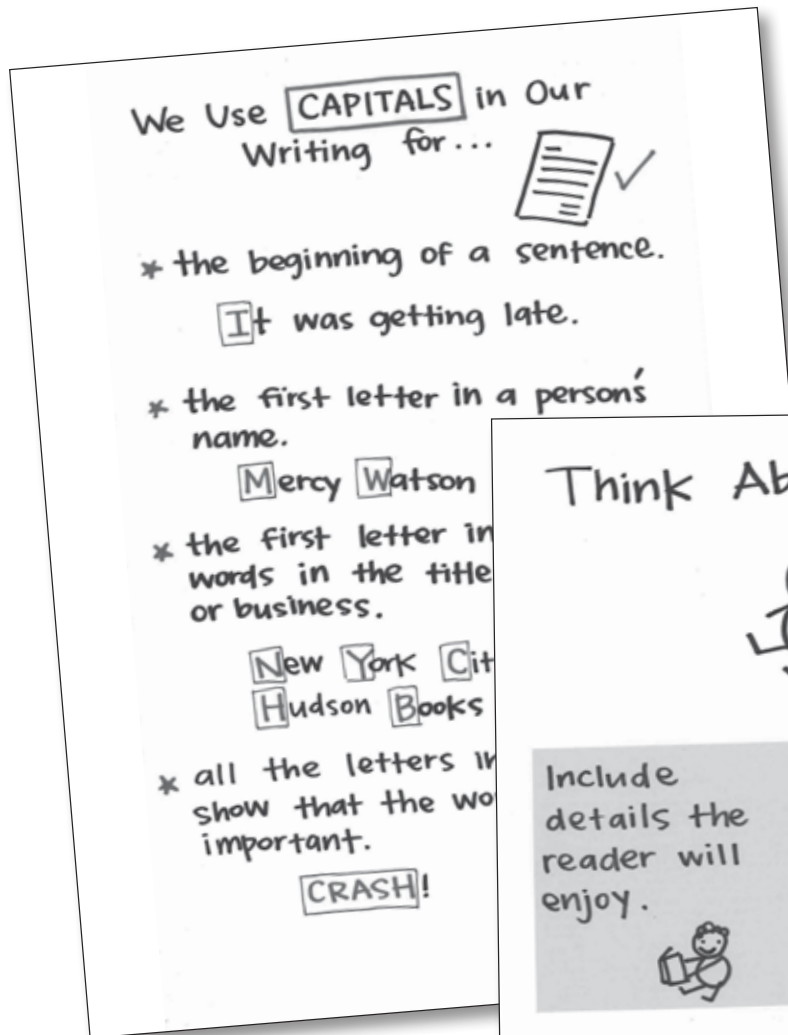 We Use CAPITALS in Our
Writing for...
* the beginning of a sentence.
It was getting late.
* the first letter in a person's
name.
Mercy Watson
* the first letter in
words in the title
or business.
New York Cit
Hudson Books
* all the letters in
show that the wo
important.
CRASH!
Think Ab
Include
details the
reader will
enjoy.